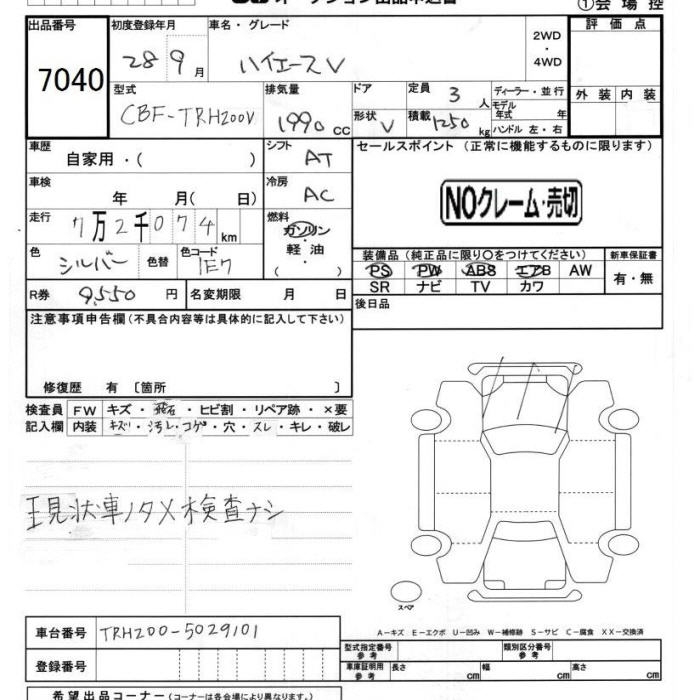 ①会場控
出品番号 7040
初度登録年月 28 9月
車名・グレード ハイエースV
2WD・4WD
評価点
外装 内装
型式 CBF-TRH200V
排気量 1990cc
ドア
形状 V
定員 3人
積載 1250kg
ディーラー・並行
モデル年式 年
ハンドル 左・右
車歴 自家用・( )
シフト AT
セールスポイント(正常に機能するものに限ります)
車検 年 月( 日)
冷房 AC
NOクレーム・売切
走行 7万2千074km
燃料 ガソリン・軽油・( )
色 シルバー 色替 色コード 1E7
装備品(純正品に限り○をつけてください)
新車保証書
PS PW ABS エアB AW
有・無
SR ナビ TV カワ
R券 9550円 名変期限 月 日
後日品
注意事項申告欄(不具合内容等は具体的に記入して下さい)
修復歴 有 [箇所 ]
検査員 FW キズ・飛石・ヒビ割・リペア跡・×要
記入欄 内装 キズ・汚レ・コゲ・穴・スレ・キレ・破レ
現状車ノタメ検査ナシ
スペア
A-キズ E-エクボ U-凹み W-補修跡 S-サビ C-腐食 XX-交換済
車台番号 TRH200-5029101
型式指定番号参考 類別区分番号参考
登録番号
車庫証明用参考 長さ cm 幅 cm 高さ cm
希望出品コーナー(コーナーは各会場により異なります。)